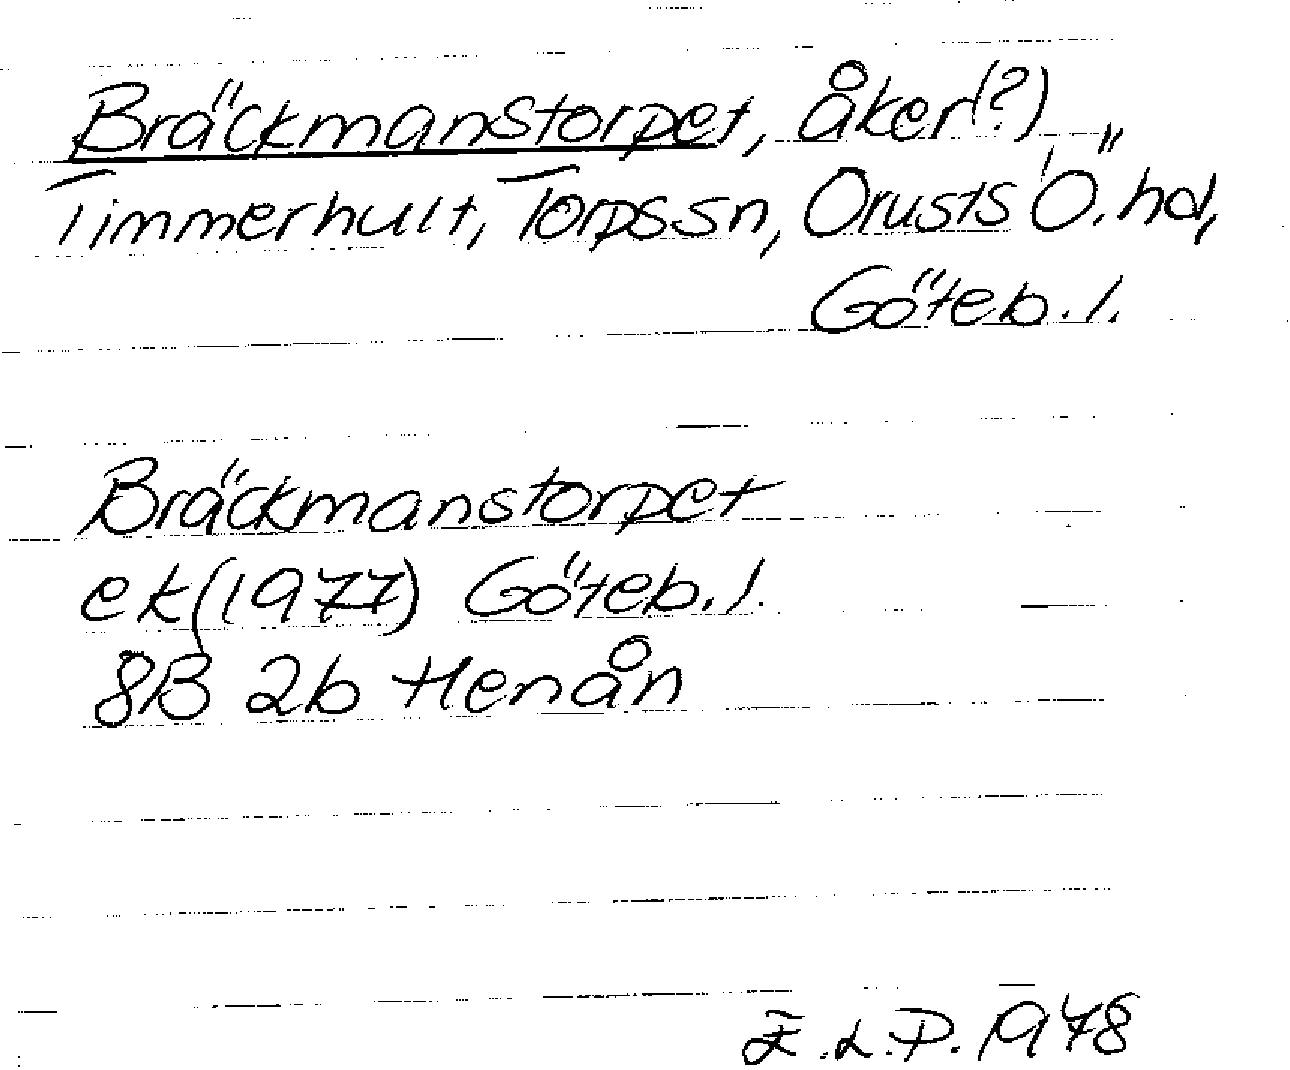 Bräckmanstorpet, åker(?)
Timmerhult, Torps sn, Orusts Ö. hd,
Göteb. l.
Bräckmanstorpet
ek (1977) Göteb. l.
8B 2b Henån
E.L.P. 1978